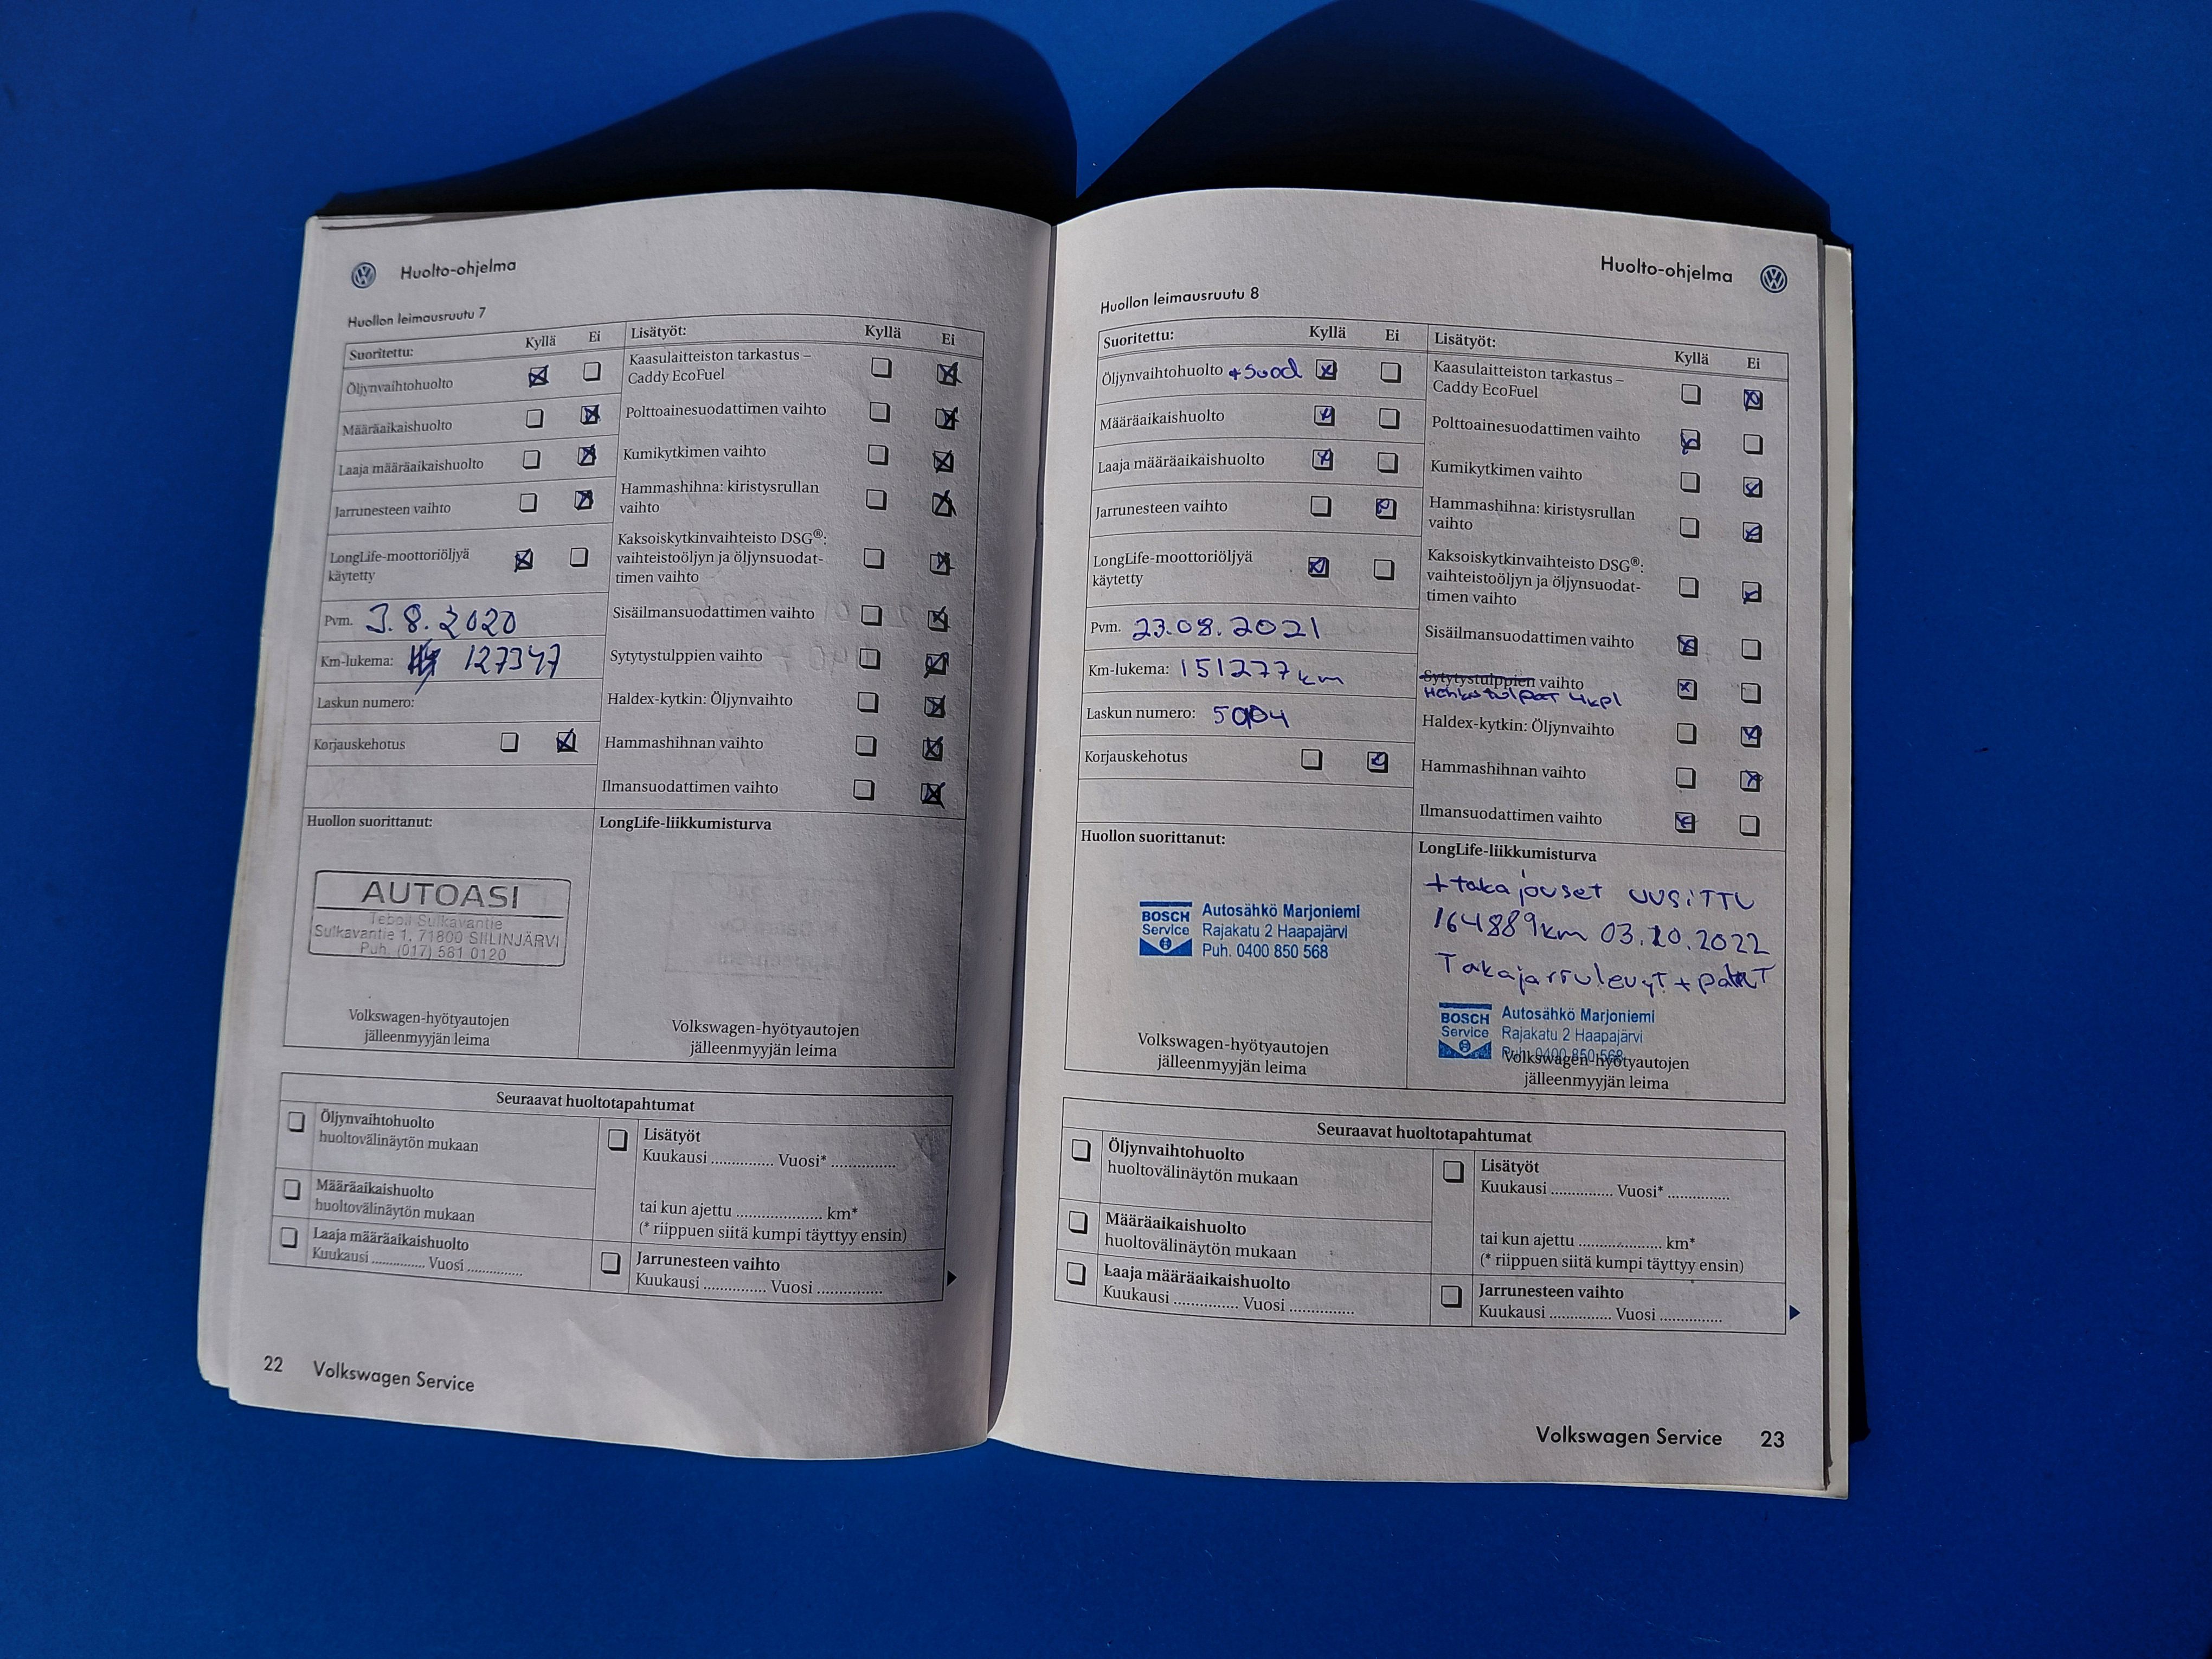 Huolto-ohjelma
Huollon leimausruutu 7
Suoritettu: Kyllä Ei
Öljynvaihtohuolto
Määräaikaishuolto
Laaja määräaikaishuolto
Jarrunesteen vaihto
LongLife-moottoriöljyä
käytetty
Pvm. 3.8.2020
Km-lukema: 127347
Laskun numero:
Korjauskehotus
Lisätyöt: Kyllä Ei
Kaasulaitteiston tarkastus –
Caddy EcoFuel
Polttoainesuodattimen vaihto
Kumikytkimen vaihto
Hammashihna: kiristysrullan
vaihto
Kaksoiskytkinvaihteisto DSG®:
vaihteistoöljyn ja öljynsuodat-
timen vaihto
Sisäilmansuodattimen vaihto
Sytytystulppien vaihto
Haldex-kytkin: Öljynvaihto
Hammashihnan vaihto
Ilmansuodattimen vaihto
Huollon suorittanut:
AUTOASI
Teboil Sulkavantie
Sulkavantie 1, 71800 SIILINJÄRVI
Puh. (017) 581 0120
Volkswagen-hyötyautojen
jälleenmyyjän leima
LongLife-liikkumisturva
Volkswagen-hyötyautojen
jälleenmyyjän leima
Seuraavat huoltotapahtumat
Öljynvaihtohuolto
huoltovälinäytön mukaan
Määräaikaishuolto
huoltovälinäytön mukaan
Laaja määräaikaishuolto
Kuukausi .............. Vuosi ..............
Lisätyöt
Kuukausi .............. Vuosi* ..............
tai kun ajettu .................... km*
(* riippuen siitä kumpi täyttyy ensin)
Jarrunesteen vaihto
Kuukausi .............. Vuosi ..............
22 Volkswagen Service
Huolto-ohjelma
Huollon leimausruutu 8
Suoritettu: Kyllä Ei
Öljynvaihtohuolto +suod
Määräaikaishuolto
Laaja määräaikaishuolto
Jarrunesteen vaihto
LongLife-moottoriöljyä
käytetty
Pvm. 23.08.2021
Km-lukema: 151277 km
Laskun numero: 5004
Korjauskehotus
Lisätyöt: Kyllä Ei
Kaasulaitteiston tarkastus –
Caddy EcoFuel
Polttoainesuodattimen vaihto
Kumikytkimen vaihto
Hammashihna: kiristysrullan
vaihto
Kaksoiskytkinvaihteisto DSG®:
vaihteistoöljyn ja öljynsuodat-
timen vaihto
Sisäilmansuodattimen vaihto
Sytytystulppien vaihto
Hehkutulpat 4kpl
Haldex-kytkin: Öljynvaihto
Hammashihnan vaihto
Ilmansuodattimen vaihto
Huollon suorittanut:
BOSCH Service
Autosähkö Marjoniemi
Rajakatu 2 Haapajärvi
Puh. 0400 850 568
Volkswagen-hyötyautojen
jälleenmyyjän leima
LongLife-liikkumisturva
+takajouset uusittu
164889km 03.10.2022
Takajarrulevyt + palat
BOSCH Service
Autosähkö Marjoniemi
Rajakatu 2 Haapajärvi
Puh. 0400 850 568
Volkswagen-hyötyautojen
jälleenmyyjän leima
Seuraavat huoltotapahtumat
Öljynvaihtohuolto
huoltovälinäytön mukaan
Määräaikaishuolto
huoltovälinäytön mukaan
Laaja määräaikaishuolto
Kuukausi .............. Vuosi ..............
Lisätyöt
Kuukausi .............. Vuosi* ..............
tai kun ajettu .................... km*
(* riippuen siitä kumpi täyttyy ensin)
Jarrunesteen vaihto
Kuukausi .............. Vuosi ..............
Volkswagen Service 23